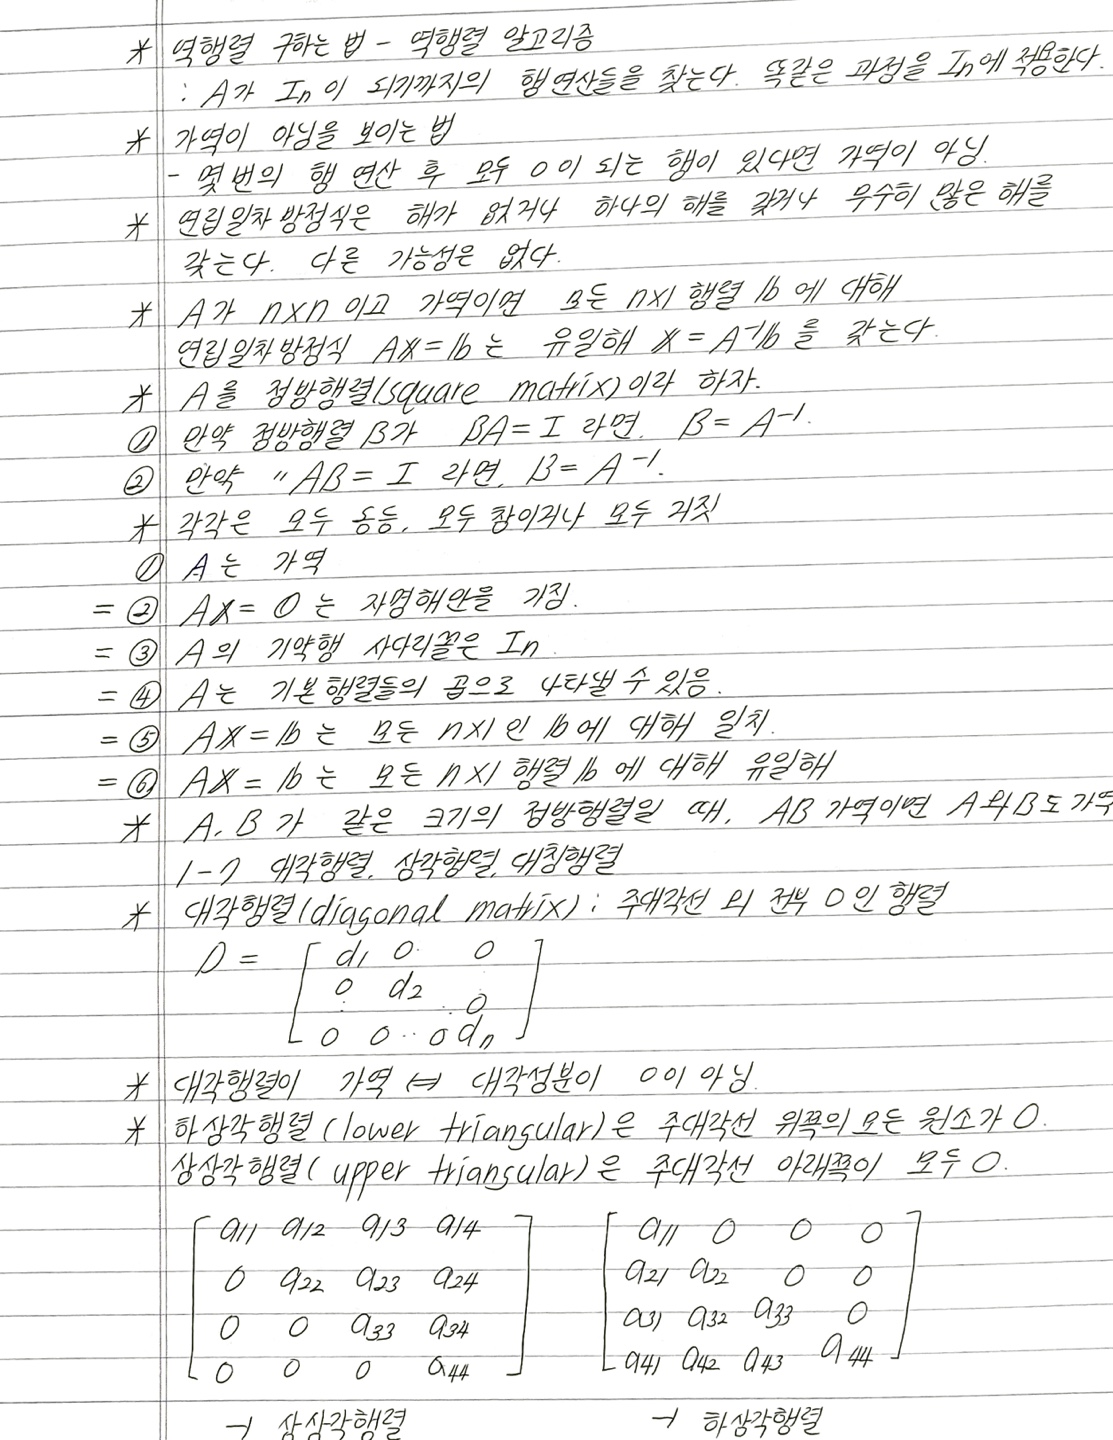 * 역행렬 구하는 법 - 역행렬 알고리즘
: A가 In이 되기까지의 행연산들을 찾는다. 똑같은 과정을 In에 적용한다.
* 가역이 아님을 보이는 법
- 몇번의 행 연산 후 모두 0이 되는 행이 있다면 가역이 아님.
* 연립일차방정식은 해가 없거나 하나의 해를 갖거나 무수히 많은 해를
갖는다. 다른 가능성은 없다.
* A가 n×n 이고 가역이면 모든 n×1 행렬 b에 대해
연립일차방정식 Ax=b는 유일해 x=A⁻¹b를 갖는다.
* A를 정방행렬(square matrix)이라 하자.
① 만약 정방행렬 B가 BA=I 라면, B=A⁻¹.
② 만약 〃 AB=I 라면, B=A⁻¹.
* 각각은 모두 동등, 모두 참이거나 모두 거짓
① A는 가역
= ② Ax=0는 자명해만을 가짐.
= ③ A의 기약행 사다리꼴은 In.
= ④ A는 기본행렬들의 곱으로 나타낼 수 있음.
= ⑤ Ax=b는 모든 n×1인 b에 대해 일치.
= ⑥ Ax=b는 모든 n×1 행렬 b에 대해 유일해
* A, B가 같은 크기의 정방행렬일 때, AB 가역이면 A와 B도 가역
1-7 대각행렬, 삼각행렬, 대칭행렬
* 대각행렬(diagonal matrix) : 주대각선 외 전부 0인 행렬
D = [ d1 0 0
0 d2 0
0 0 ·· 0 dn ]
* 대각행렬이 가역 ⇔ 대각성분이 0이 아님.
* 하삼각행렬(lower triangular)은 주대각선 위쪽의 모든 원소가 0.
상삼각행렬(upper triangular)은 주대각선 아래쪽이 모두 0.
[ a11 a12 a13 a14
0 a22 a23 a24
0 0 a33 a34
0 0 0 a44 ]
→ 상삼각행렬
[ a11 0 0 0
a21 a22 0 0
a31 a32 a33 0
a41 a42 a43 a44 ]
→ 하삼각행렬